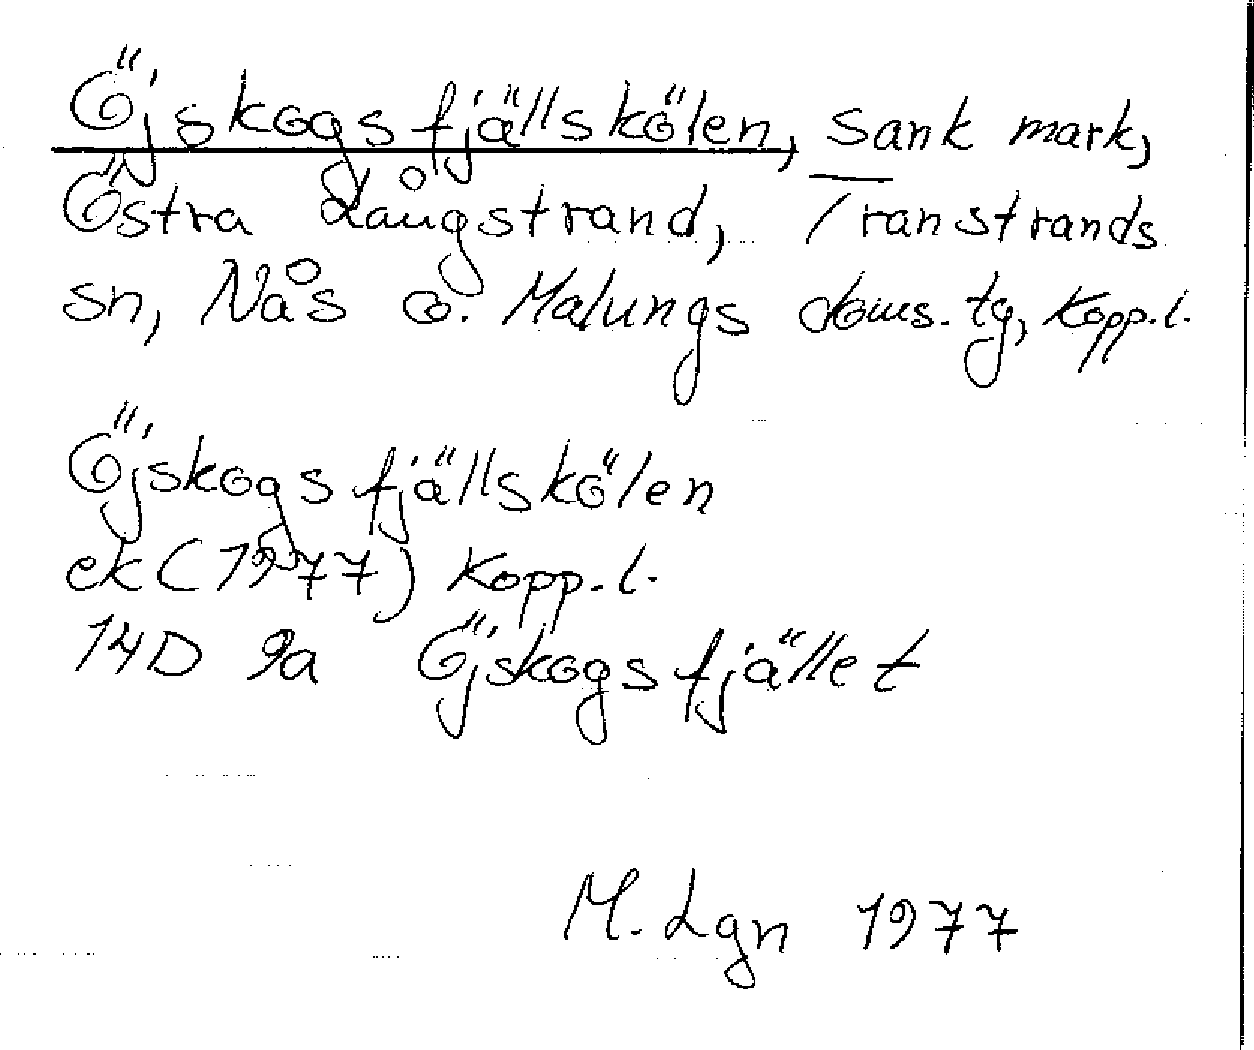 Öjskogsfjällskölen, sank mark,
Östra Långstrand, Transtrands
sn, Nås o. Malungs doms. tg, Kopp.l.
Öjskogsfjällskölen
ek (1977) Kopp.l.
14D 9a Öjskogsfjället
M. Lgn 1977